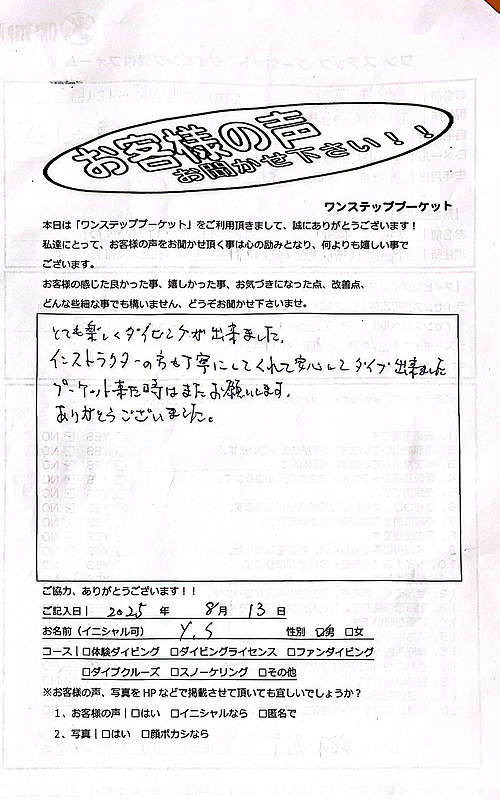 お客様の声
お聞かせ下さい!!
ワンステッププーケット
本日は「ワンステッププーケット」をご利用頂きまして、誠にありがとうございます!
私達にとって、お客様の声をお聞かせ頂く事は心の励みとなり、何よりも嬉しい事で
ございます。
お客様の感じた良かった事、嬉しかった事、お気づきになった点、改善点、
どんな些細な事でも構いません、どうぞお聞かせ下さいませ。
とても楽しくダイビングが出来ました。
インストラクターの方も丁寧にしてくれて安心してダイブ出来ました
プーケット来た時はまたお願いします。
ありがとうございました。
ご協力、ありがとうございます!!
ご記入日| 2025 年 8月 13 日
お名前(イニシャル可) Y.S 性別 ☑男 □女
コース|□体験ダイビング □ダイビングライセンス □ファンダイビング
□ダイブクルーズ □スノーケリング □その他
※お客様の声、写真を HP などで掲載させて頂いても宜しいでしょうか?
1、お客様の声|□はい □イニシャルなら □匿名で
2、写真|□はい □顔ボカシなら